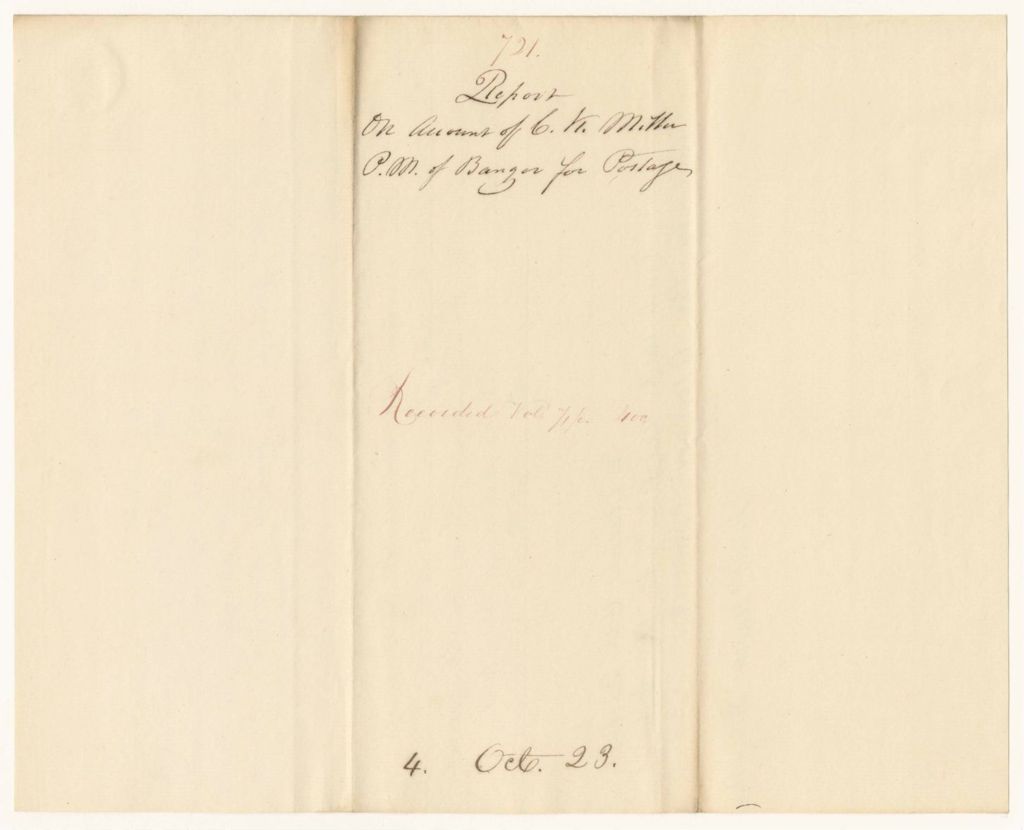 721.
Report
On Account of C. K. Miller
P.M. of Bangor for Postage
Recorded Vol 7 p. 409
4. Oct. 23.